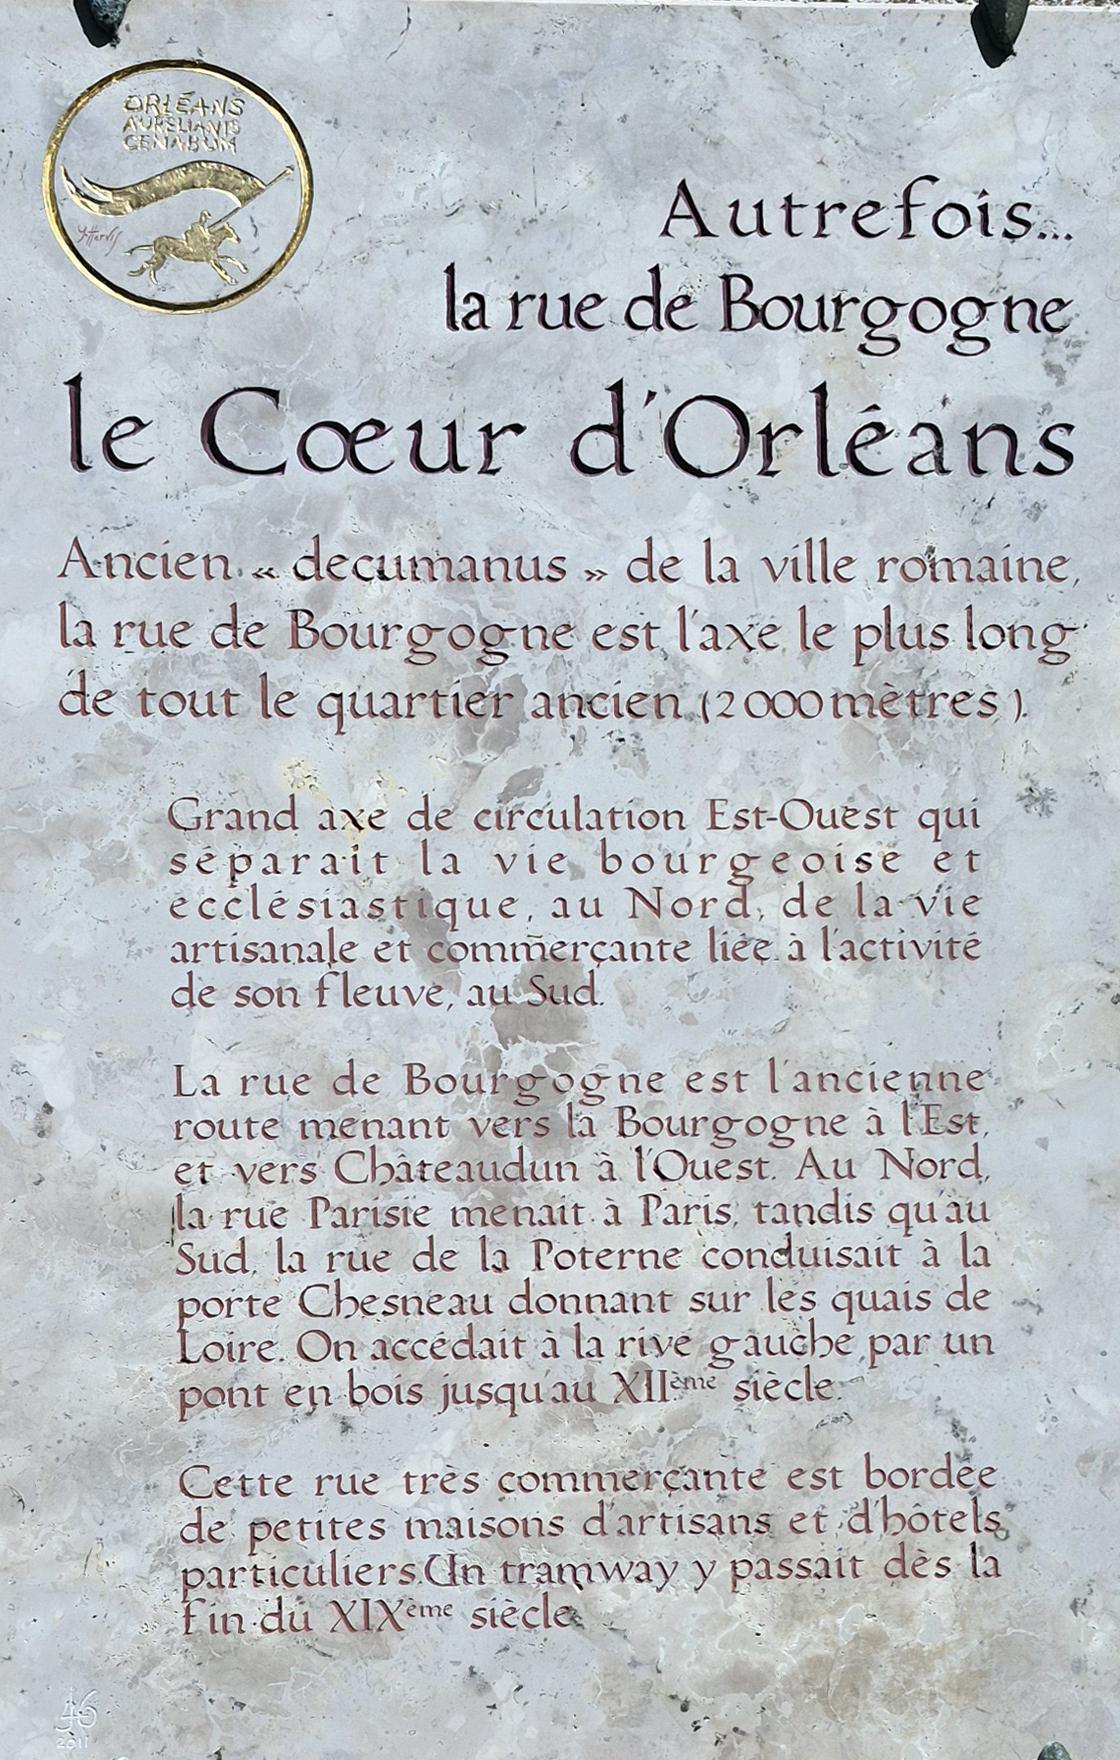 ORLÉANS
AURELIANIS
CENABUM
Autrefois...
la rue de Bourgogne
le Cœur d'Orléans
Ancien « decumanus » de la ville romaine,
la rue de Bourgogne est l'axe le plus long
de tout le quartier ancien (2000 mètres).
Grand axe de circulation Est-Ouest qui
séparait la vie bourgeoise et
ecclésiastique, au Nord, de la vie
artisanale et commerçante liée à l'activité
de son fleuve, au Sud.
La rue de Bourgogne est l'ancienne
route menant vers la Bourgogne à l'Est,
et vers Châteaudun à l'Ouest. Au Nord,
la rue Parisie menait à Paris, tandis qu'au
Sud, la rue de la Poterne conduisait à la
porte Chesneau donnant sur les quais de
Loire. On accédait à la rive gauche par un
pont en bois jusqu'au XIIème siècle.
Cette rue très commerçante est bordée
de petites maisons d'artisans et d'hôtels
particuliers. Un tramway y passait dès la
fin du XIXème siècle.
2011